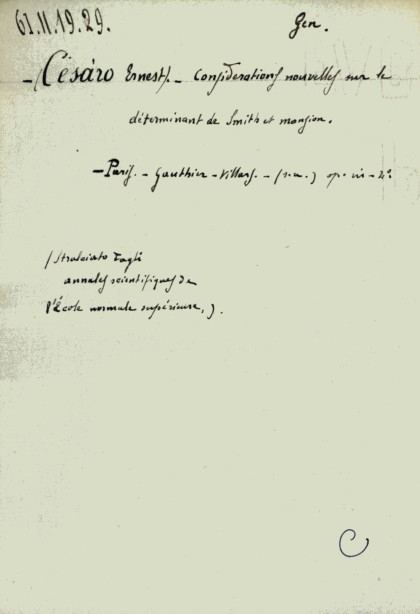 61.11.19.29. Gen.
- Césaro Ernest. - Considerations nouvelles sur le
déterminant de Smith et mansion.
- Paris. - Gauthier - Villars. - (s.a.) op. in - 4º
(Stralciato dagli
annales scientifiques de
l'École normale supérieure, ).
C